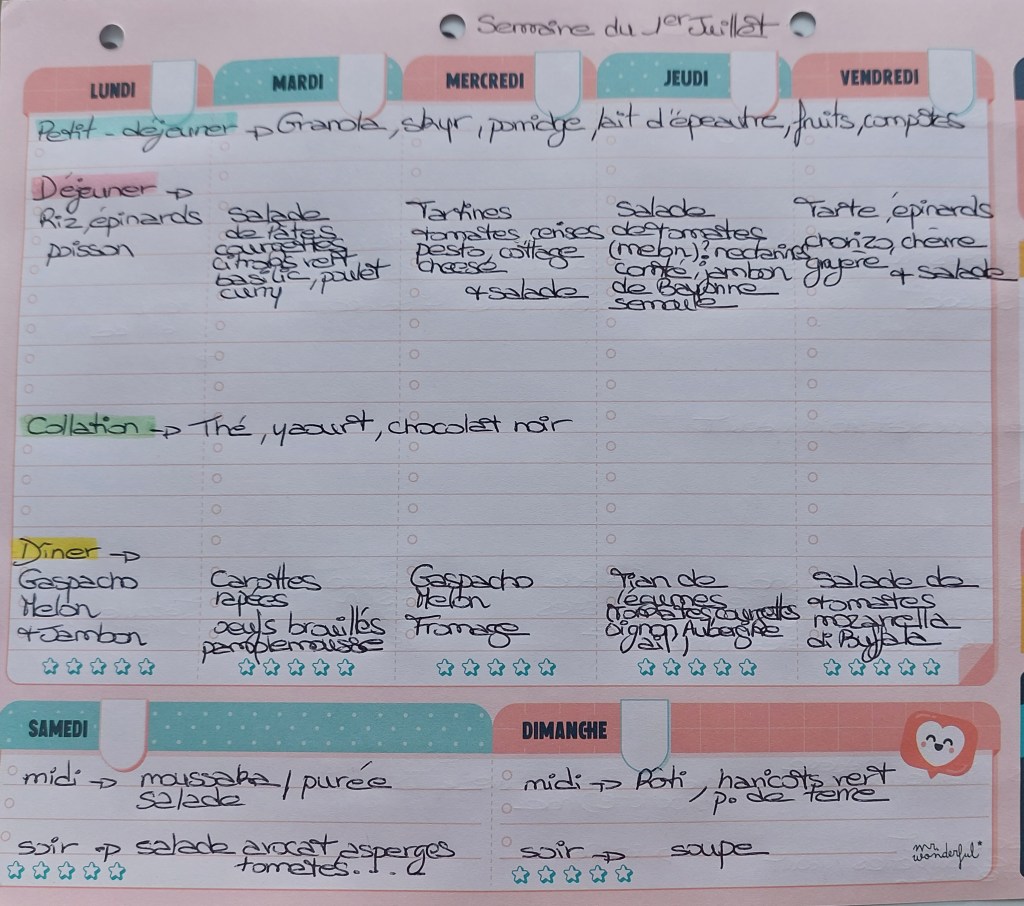 Semaine du 1er Juillet
LUNDI MARDI MERCREDI JEUDI VENDREDI
Petit-déjeuner → Granola, skyr, porridge, lait d'épeautre, fruits, compotes
Déjeuner →
Riz, épinards
poisson
Salade
de pâtes
courgettes
citrons vert
basilic, poulet
curry
Tartines
tomates cerises
pesto, cottage
cheese
+ salade
Salade
de tomates
(melon)? nectarines
comté, jambon
de Bayonne
semoule
Tarte, épinards
chorizo, chèvre
gruyère
+ salade
Collation → Thé, yaourt, chocolat noir
Dîner →
Gaspacho
Melon
+ Jambon
Carottes
rapées
oeufs brouillés
pamplemousse
Gaspacho
Melon
Fromage
Tian de
légumes
tomates courgettes
oignon, Aubergine
ail
Salade de
tomates
mozarella
di Buffala
SAMEDI
midi → moussaka / purée
salade
soir → salade avocat asperges
tomates...
DIMANCHE
midi → Rôti, haricots vert
p. de terre
soir → soupe
mr. wonderful*